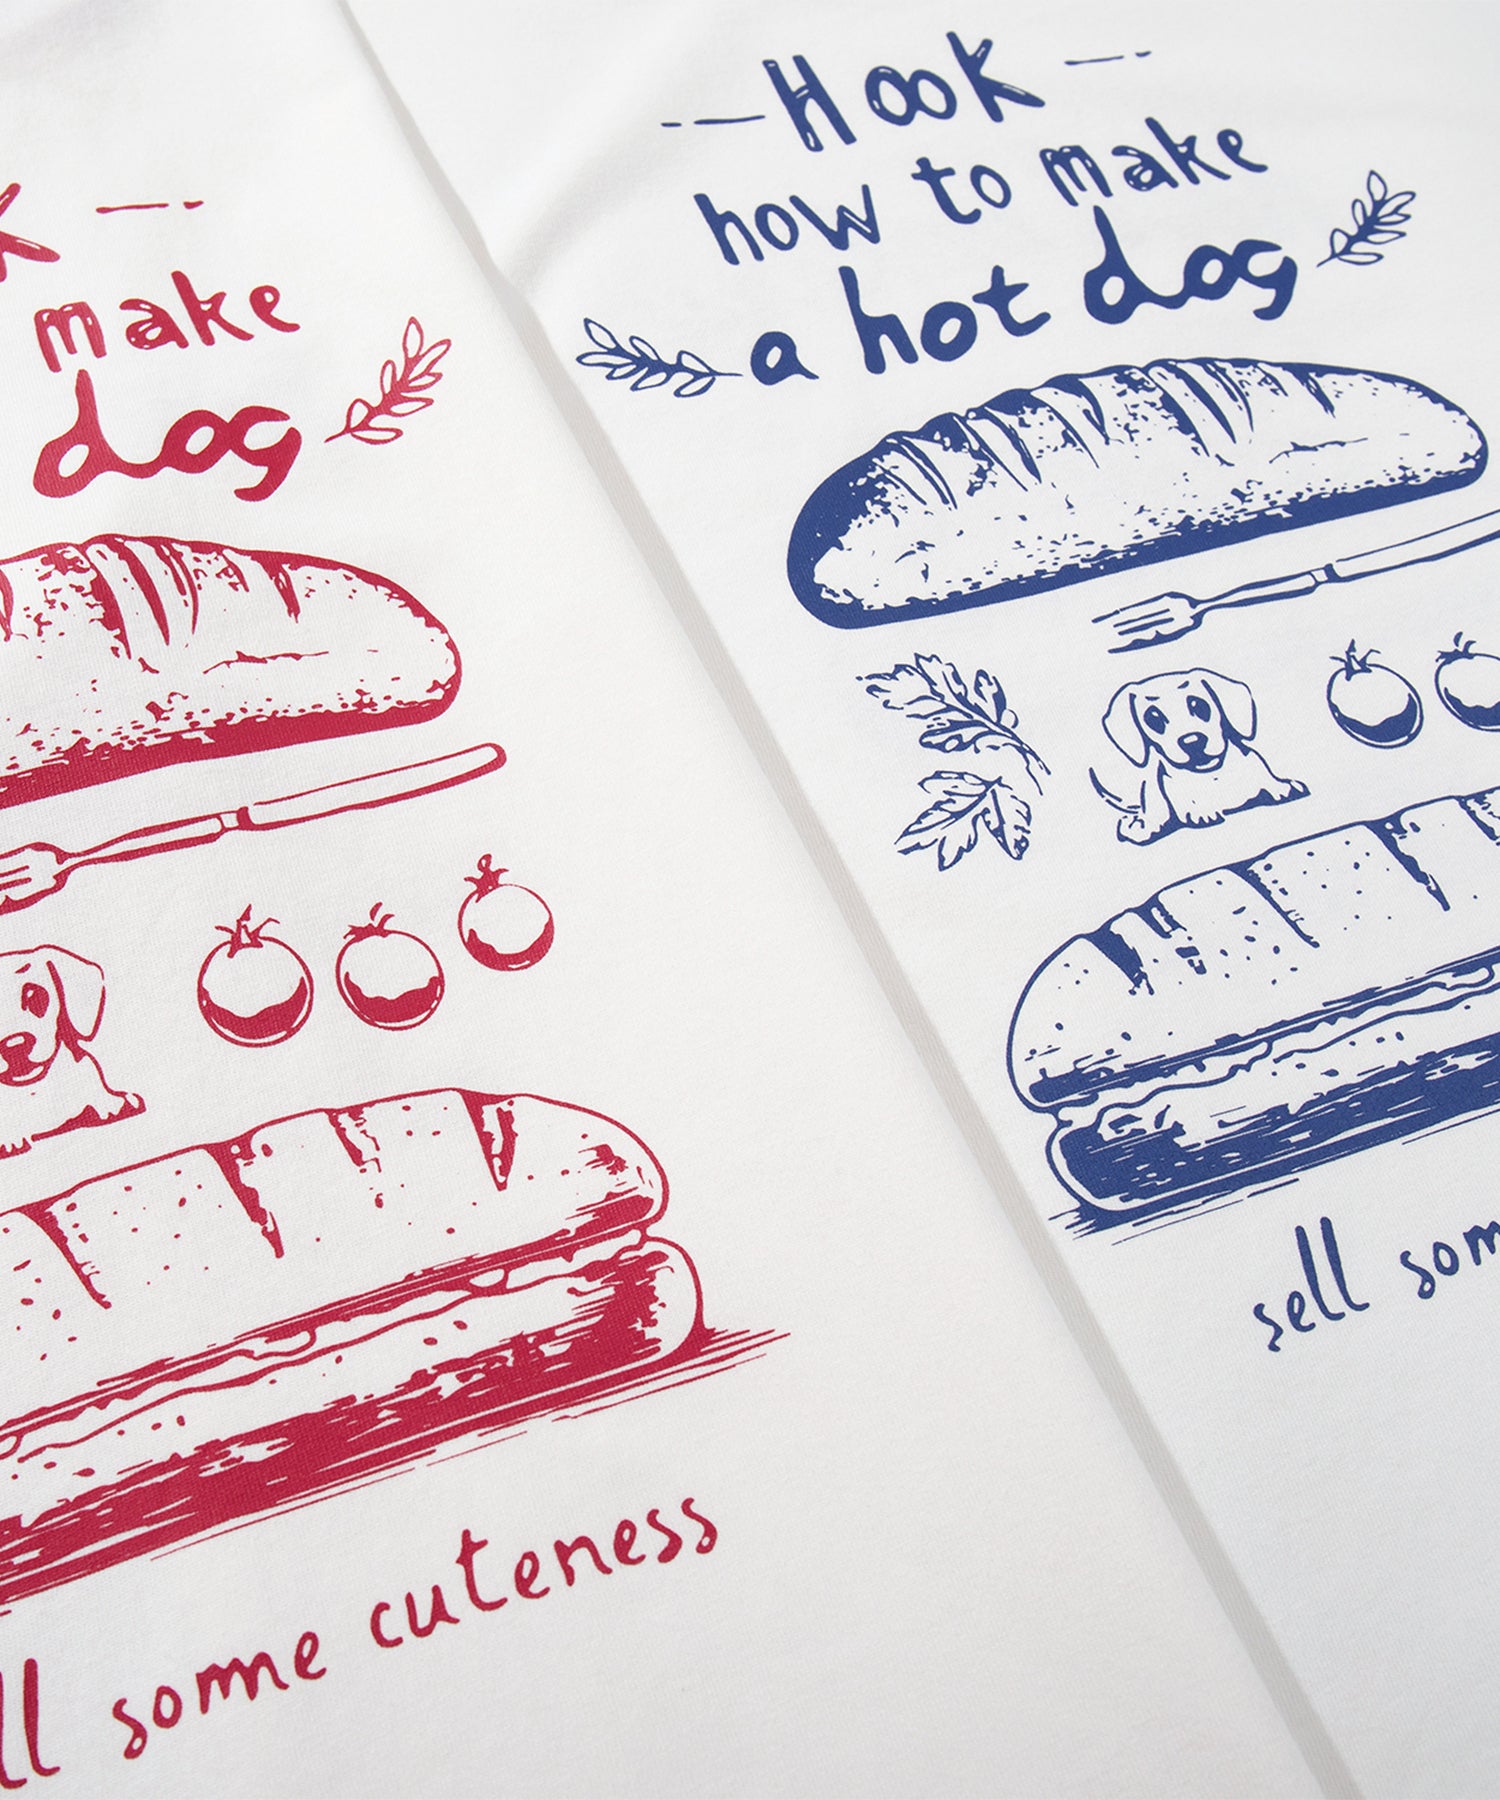 make
dog
some cuteness
Hook
how to make
a hot dog
sell